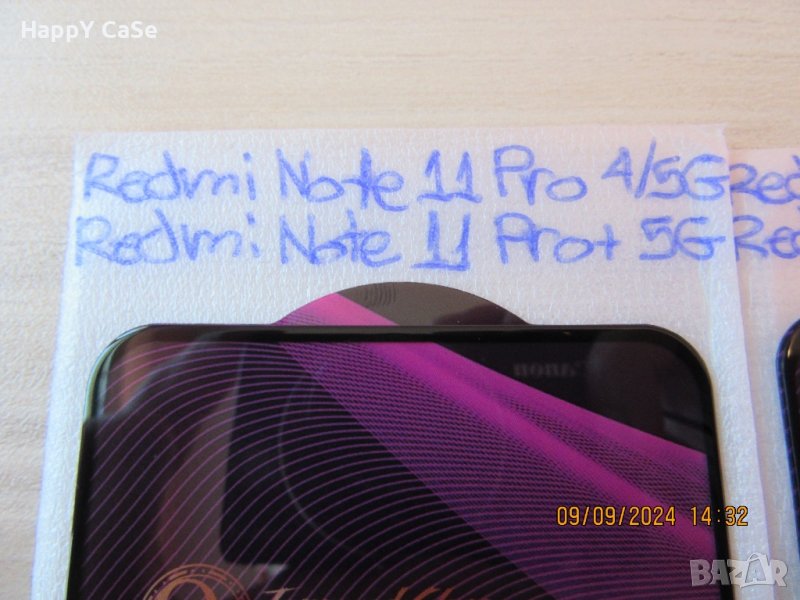 HappY CaSe
Redmi Note 11 Pro 4/5G Red
Redmi Note 11 Pro+ 5G Red
09/09/2024 14:32
BAZAR